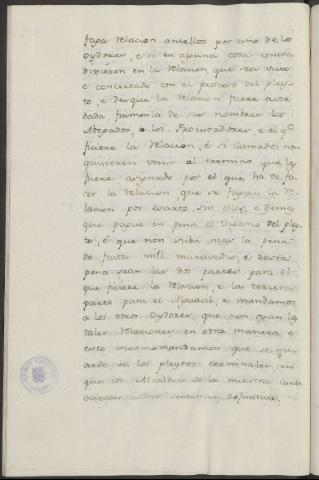 faga relacion antellos por uno de los
Oydores, e si en alguna cosa contra
dixieren en la relacion, que sea visto
e concertado con el proceso del pley-
to, é desque la relacion fuere acor
dada, firmenla de sus nombres los
Abogados, o los Procuradores, e el q.e
ficiere la relacion, é si llamados non
quisieren venir al termino que les
fuere asignado por el que ha de fa
cer la relacion, que se fagan la re-
lacion por escrito, sin ellos, e demas
que pague en pena el Diezmo del pley-
to, é que non suba mas la pena
de fasta mill maravedis, é desta
pena sean las dos partes para el
que ficiere la relacion, é la tercera
parte para el Alguacil, é mandamos
a los otros Oydores que non oyan las
tales relaciones en otra manera, e
esto mesmo mandamos que se gu
arde en los pleytos creminales, en
que los Alcaldes de la nuestra Corte
ovieren a dar sentencia definitiva.